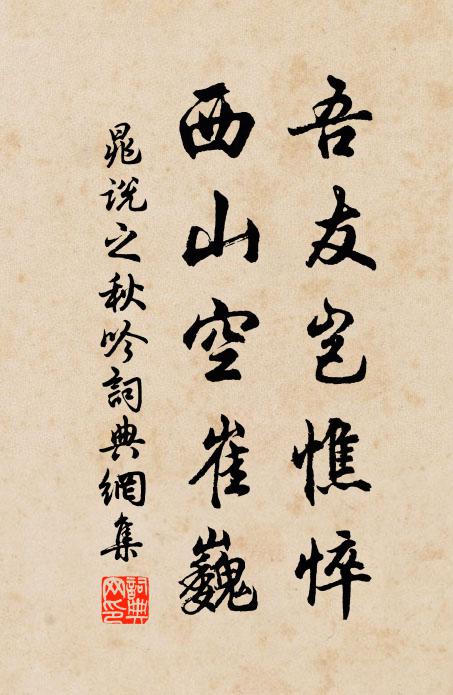 吾友豈憔悴
西山空崔巍
晁說之秋吟詞典網集
詞典網印